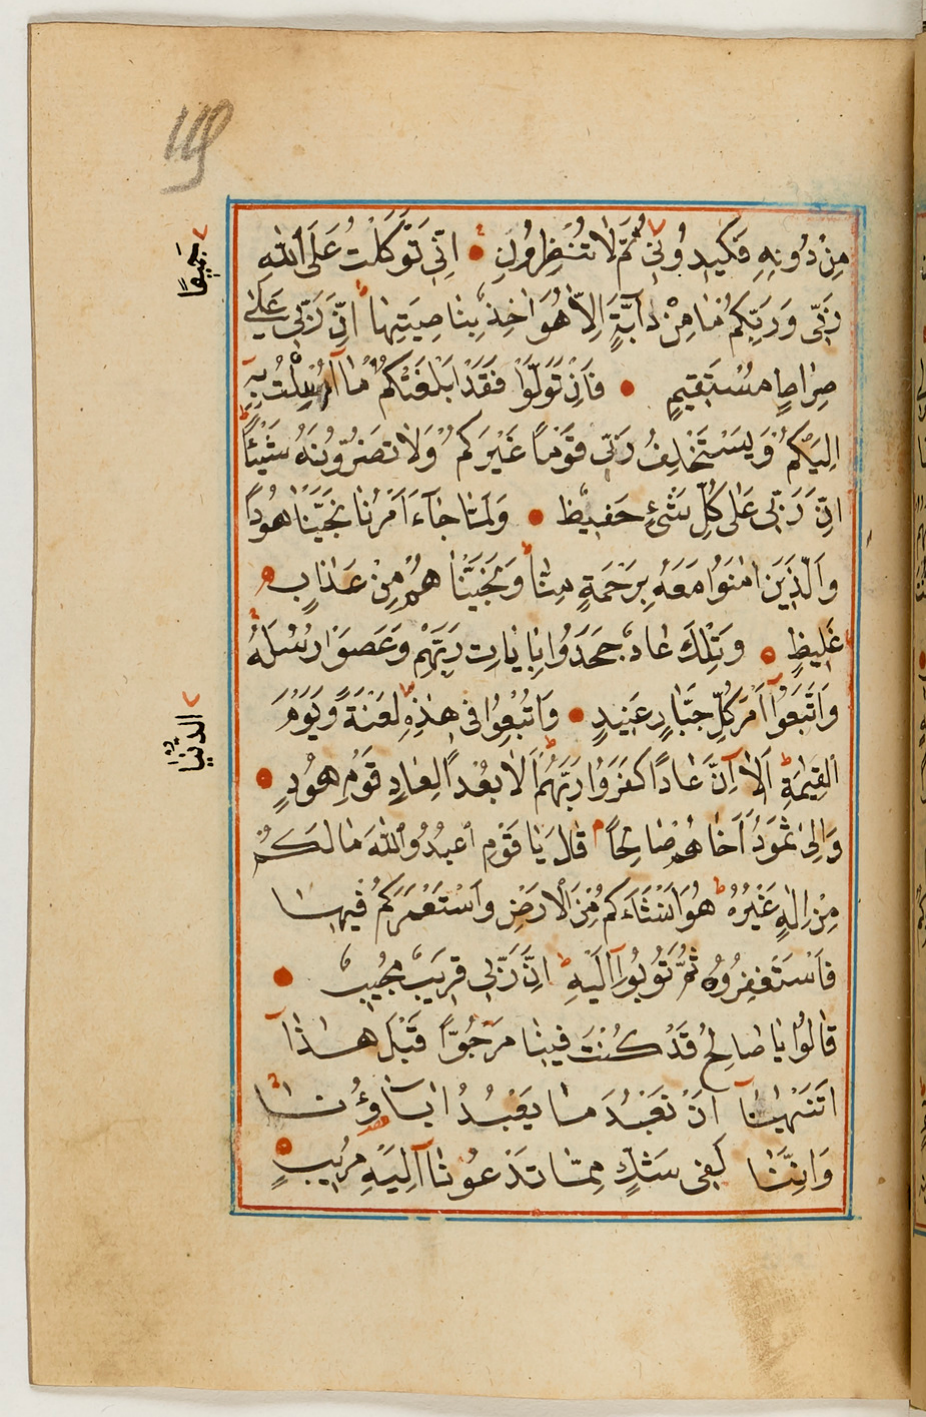 ١١٩
مِنْ دُونِهِ فَكِيدُونِي ثُمَّ لَا تُنْظِرُونِ اِنّي تَوَكَّلْتُ عَلَى اللّٰهِ
جَمِيعًا
رَبّي وَرَبِّكُمْ مَا مِنْ دَآبَّةٍ اِلَّا هُوَ اٰخِذٌ بِنَاصِيَتِهَا اِنَّ رَبّي عَلٰى
صِرَاطٍ مُسْتَقِيمٍ فَاِنْ تَوَلَّوْا فَقَدْ اَبْلَغْتُكُمْ مَا اُرْسِلْتُ بِهِ
اِلَيْكُمْ وَيَسْتَخْلِفُ رَبّي قَوْمًا غَيْرَكُمْ وَلَا تَضُرُّونَهُ شَيْئًا
اِنَّ رَبّي عَلٰى كُلِّ شَيْءٍ حَفِيظٌ وَلَمَّا جَآءَ اَمْرُنَا نَجَّيْنَا هُودًا
وَالَّذِينَ اٰمَنُوا مَعَهُ بِرَحْمَةٍ مِنَّا وَنَجَّيْنَاهُمْ مِنْ عَذَابٍ
غَلِيظٍ وَتِلْكَ عَادٌ جَحَدُوا بِاٰيَاتِ رَبِّهِمْ وَعَصَوْا رُسُلَهُ
وَاتَّبَعُوا اَمْرَ كُلِّ جَبَّارٍ عَنِيدٍ وَاُتْبِعُوا فِي هٰذِهِ لَعْنَةً وَيَوْمَ
الدُّنْيَا
الْقِيٰمَةِ اَلَا اِنَّ عَادًا كَفَرُوا رَبَّهُمْ اَلَا بُعْدًا لِعَادٍ قَوْمِ هُودٍ
وَاِلٰى ثَمُودَ اَخَاهُمْ صَالِحًا قَالَ يَا قَوْمِ اعْبُدُوا اللّٰهَ مَا لَكُمْ
مِنْ اِلٰهٍ غَيْرُهُ هُوَ اَنْشَاَكُمْ مِنَ الْاَرْضِ وَاسْتَعْمَرَكُمْ فِيهَا
فَاسْتَغْفِرُوهُ ثُمَّ تُوبُوا اِلَيْهِ اِنَّ رَبّي قَرِيبٌ مُجِيبٌ
قَالُوا يَا صَالِحُ قَدْ كُنْتَ فِينَا مَرْجُوًّا قَبْلَ هٰذَا
اَتَنْهٰينَا اَنْ نَعْبُدَ مَا يَعْبُدُ اٰبَاؤُنَا
وَاِنَّنَا لَفِي شَكٍّ مِمَّا تَدْعُونَا اِلَيْهِ مُرِيبٍ